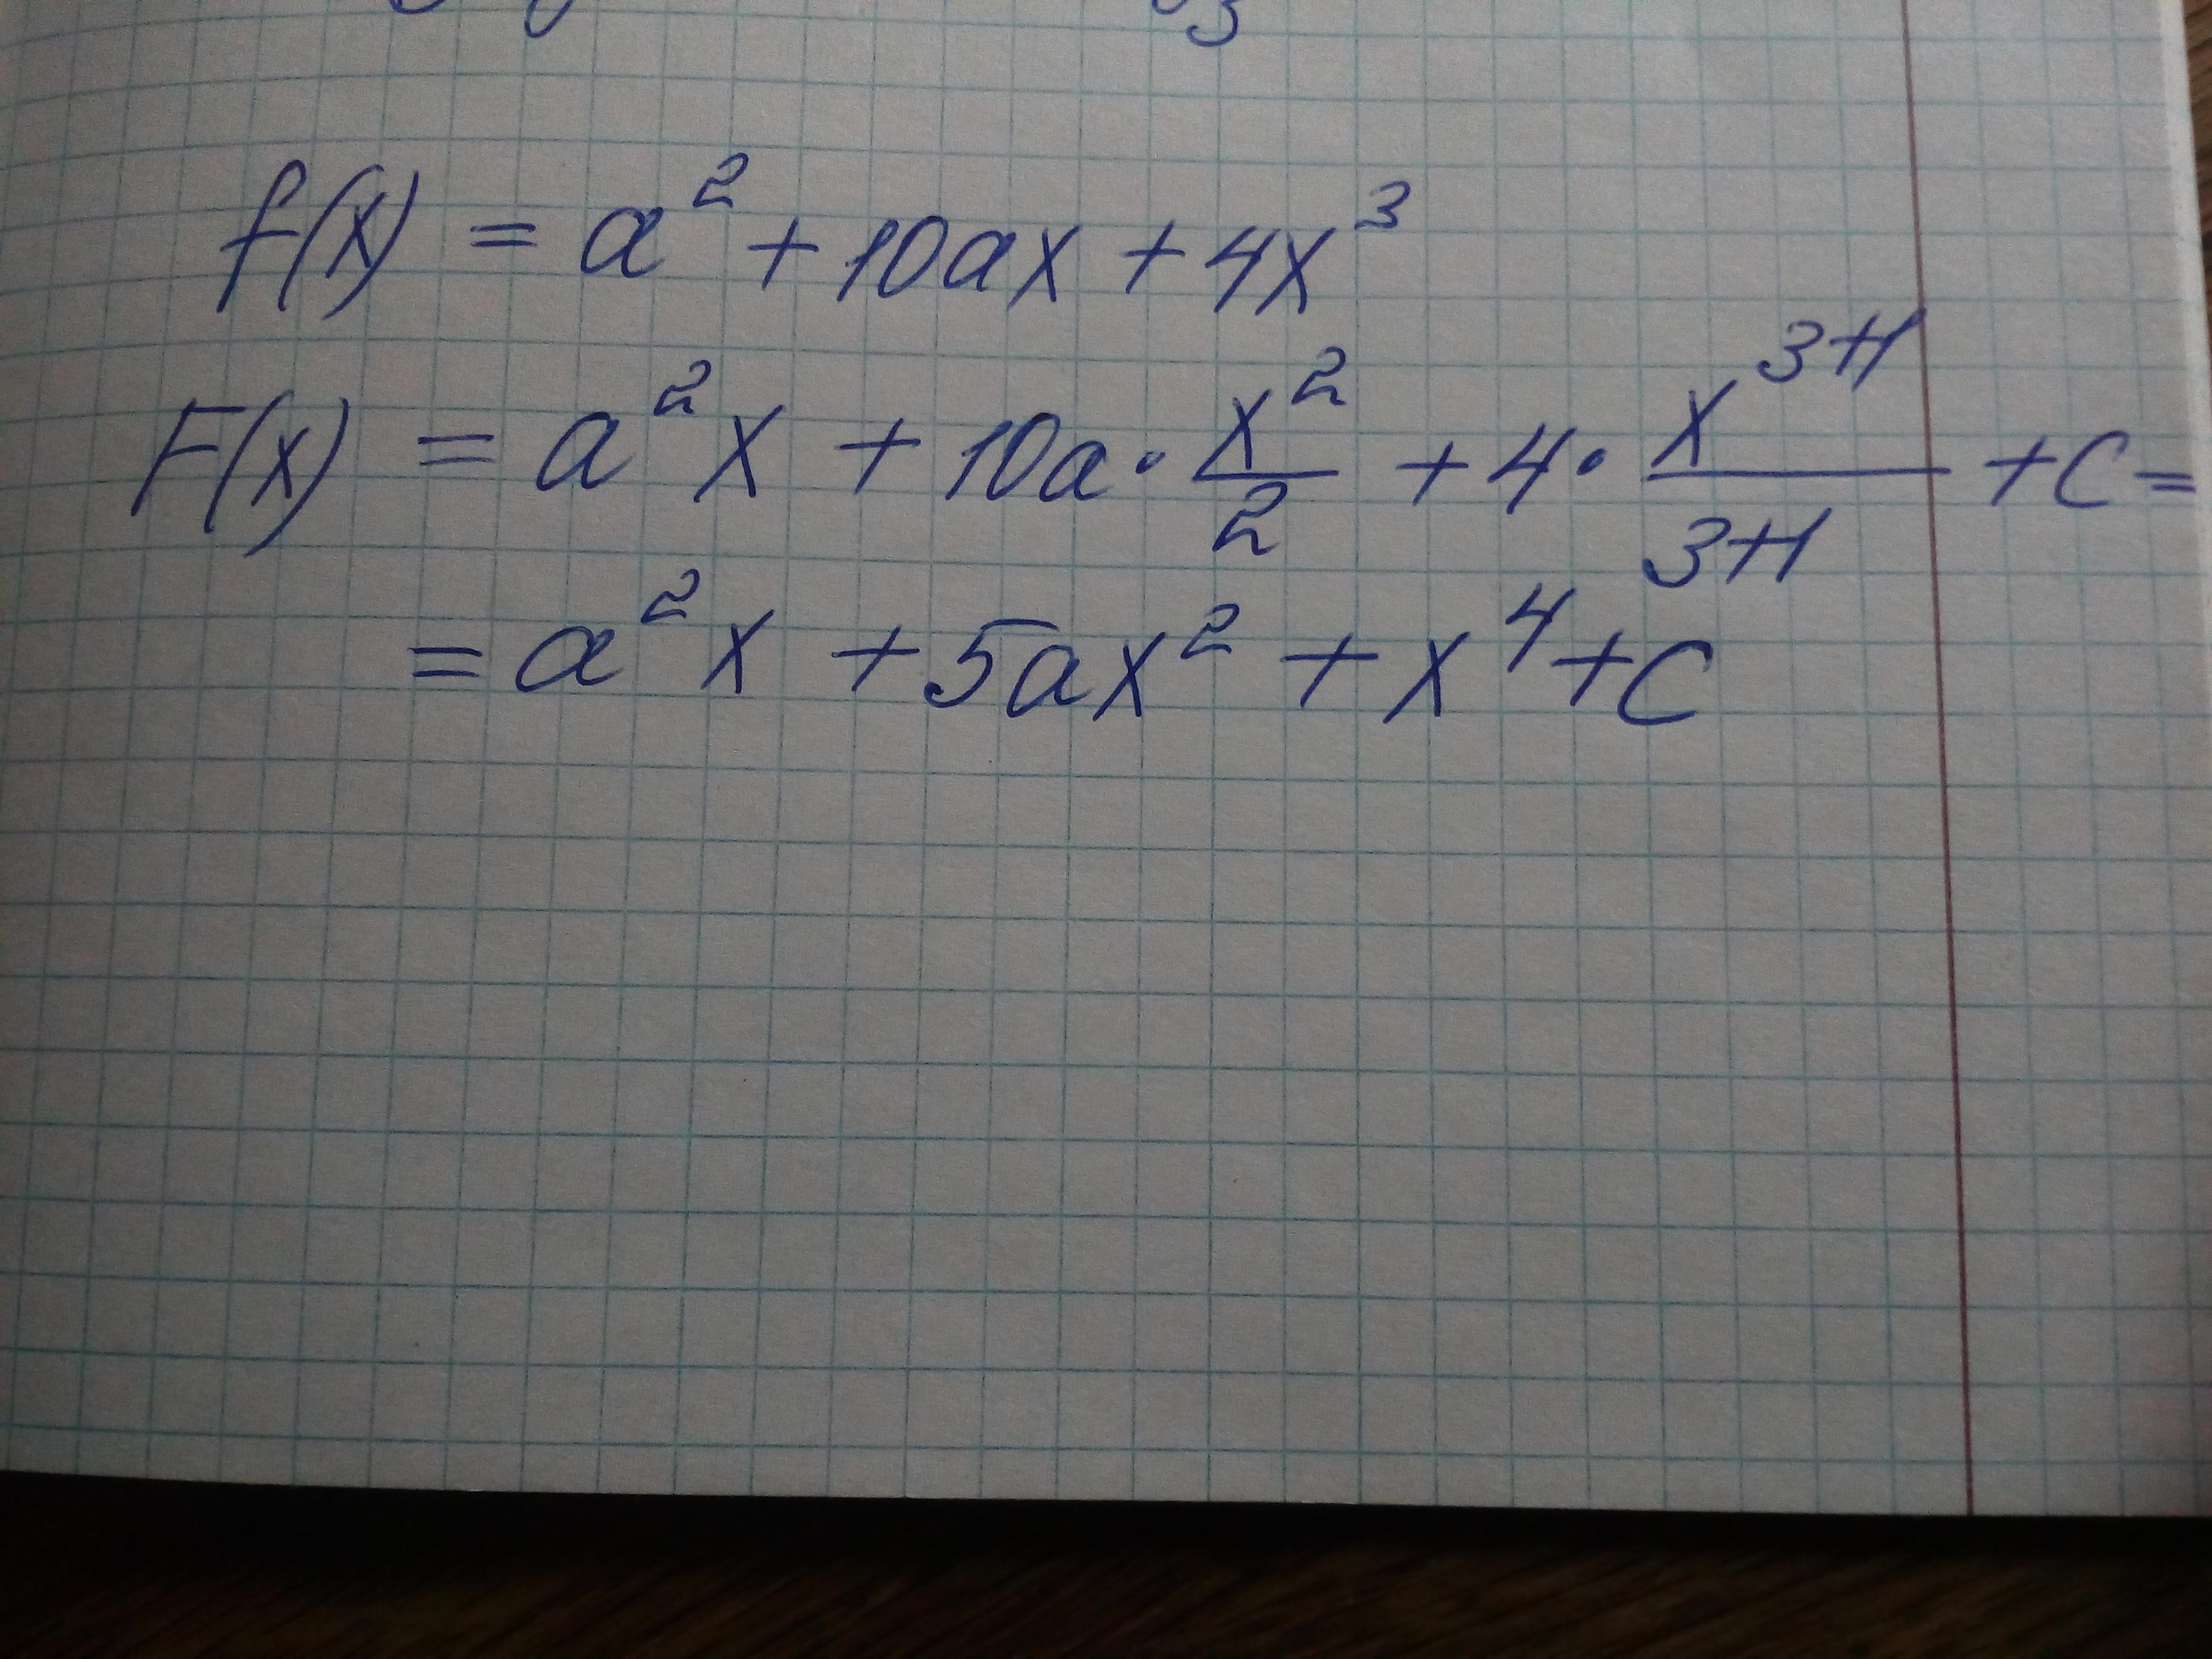 3
f(x) = a² + 10ax + 4x³
F(x) = a²x + 10a · x²/2 + 4 · x³⁺¹/3+1 + C =
= a²x + 5ax² + x⁴ + C